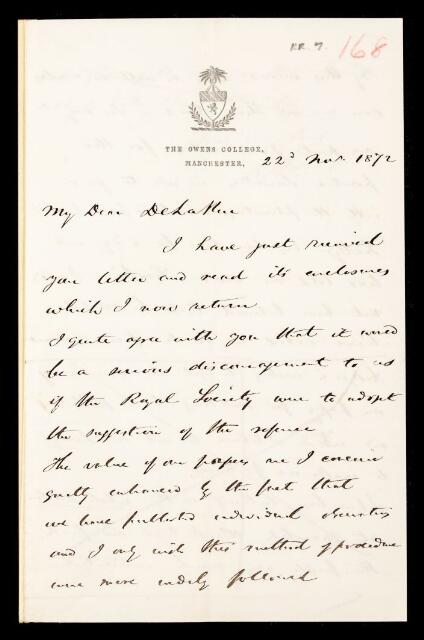 RR. 7. 168
THE OWENS COLLEGE,
MANCHESTER, 22d Novr. 1872
My Dear De La Rue
I have just received
your letter and read its enclosures
which I now return
I quite agree with you that it would
be a serious discouragement to us
if the Royal Society were to adopt
the suggestion of the referee
The value of our papers are I conceive
greatly enhanced by the fact that
we have published individual observations
and I only wish this method of procedure
were more widely followed